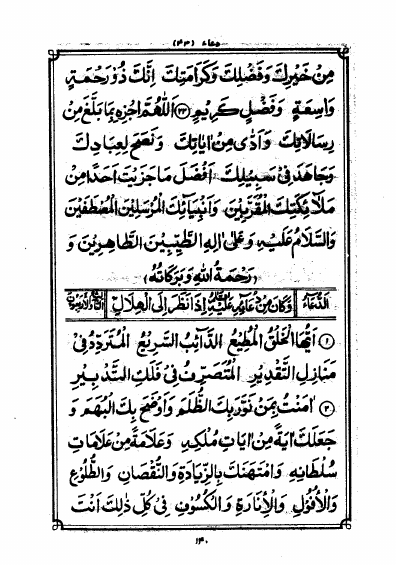 دعاء (٤٣)
مِنْ خَيْرِكَ وَفَضْلِكَ وَكَرَامَتِكَ اِنَّكَ ذُوْ رَحْمَةٍ
وَاسِعَةٍ وَفَضْلٍ كَرِيْمٍ ﴿٢٣﴾ اَللّٰهُمَّ اجْزِهِ بِمَا بَلَّغَ مِنْ
رِسَالَاتِكَ وَاَدّٰى مِنْ اٰيَاتِكَ وَنَصَحَ لِعِبَادِكَ
وَجَاهَدَ فِيْ سَبِيْلِكَ اَفْضَلَ مَا جَزَيْتَ اَحَدًا مِنْ
مَلَآئِكَتِكَ الْمُقَرَّبِيْنَ وَاَنْبِيَآئِكَ الْمُرْسَلِيْنَ الْمُصْطَفَيْنَ
وَالسَّلَامُ عَلَيْهِ وَعَلٰى اٰلِهِ الطَّيِّبِيْنَ الطَّاهِرِيْنَ وَ
(رَحْمَةُ اللّٰهِ وَبَرَكَاتُهُ)
الدُّعَاءُ وَكَانَ مِنْ دُعَائِهِ عَلَيْهِ السَّلَامُ اِذَا نَظَرَ اِلَى الْهِلَالِ
﴿١﴾ اَيُّهَا الْخَلْقُ الْمُطِيْعُ الدَّآئِبُ السَّرِيْعُ الْمُتَرَدِّدُ فِيْ
مَنَازِلِ التَّقْدِيْرِ الْمُتَصَرِّفُ فِيْ فَلَكِ التَّدْبِيْرِ
﴿٢﴾ اٰمَنْتُ بِمَنْ نَوَّرَ بِكَ الظُّلَمَ وَاَوْضَحَ بِكَ الْبُهَمَ وَ
جَعَلَكَ اٰيَةً مِنْ اٰيَاتِ مُلْكِهِ وَعَلَامَةً مِنْ عَلَامَاتِ
سُلْطَانِهِ وَامْتَهَنَكَ بِالزِّيَادَةِ وَالنُّقْصَانِ وَالطُّلُوْعِ
وَالْاُفُوْلِ وَالْاِنَارَةِ وَالْكُسُوْفِ فِيْ كُلِّ ذٰلِكَ اَنْتَ
١٤٠